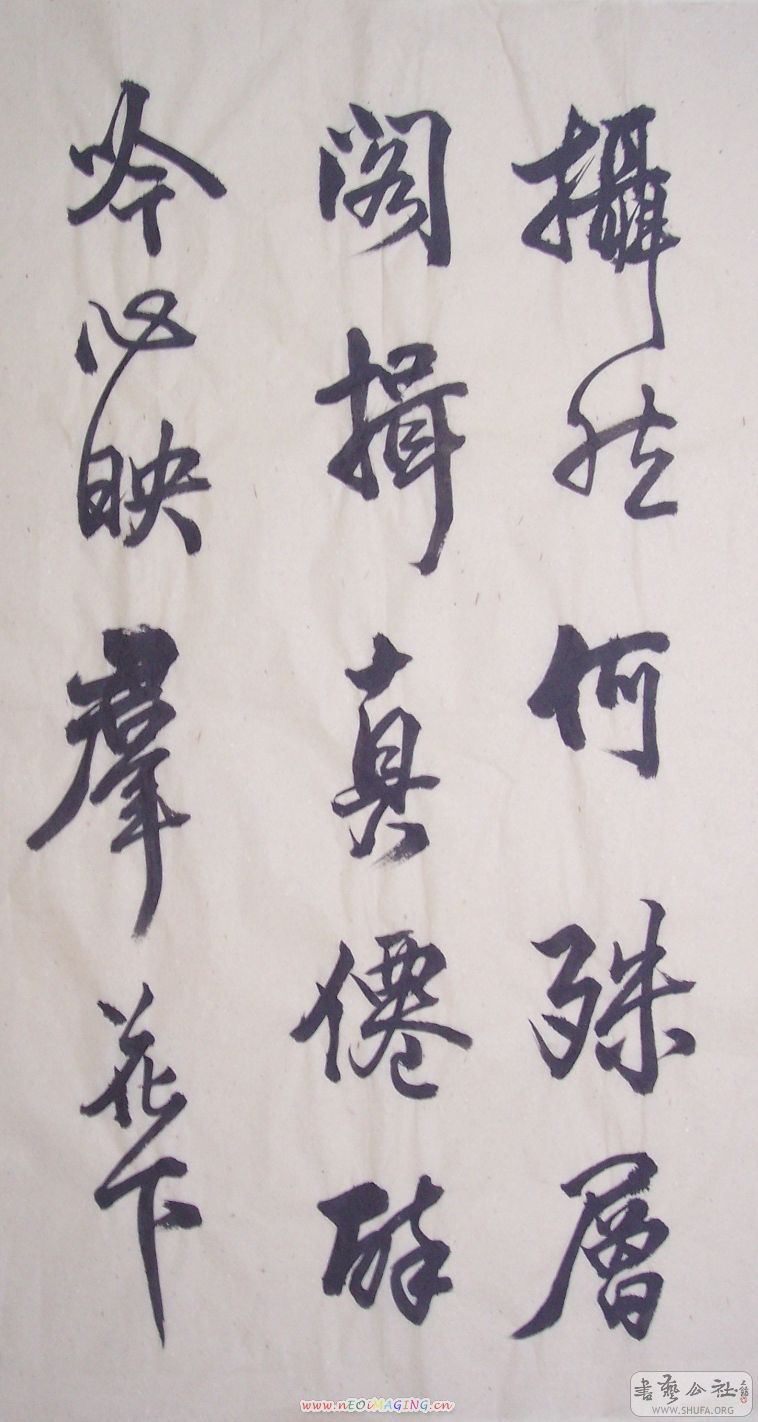 攝身何殊層
閣揖真僊醉
吟必映羣花下
www.nEOiMAGiNG.cn
書藝公社
WWW.SHUFA.ORG